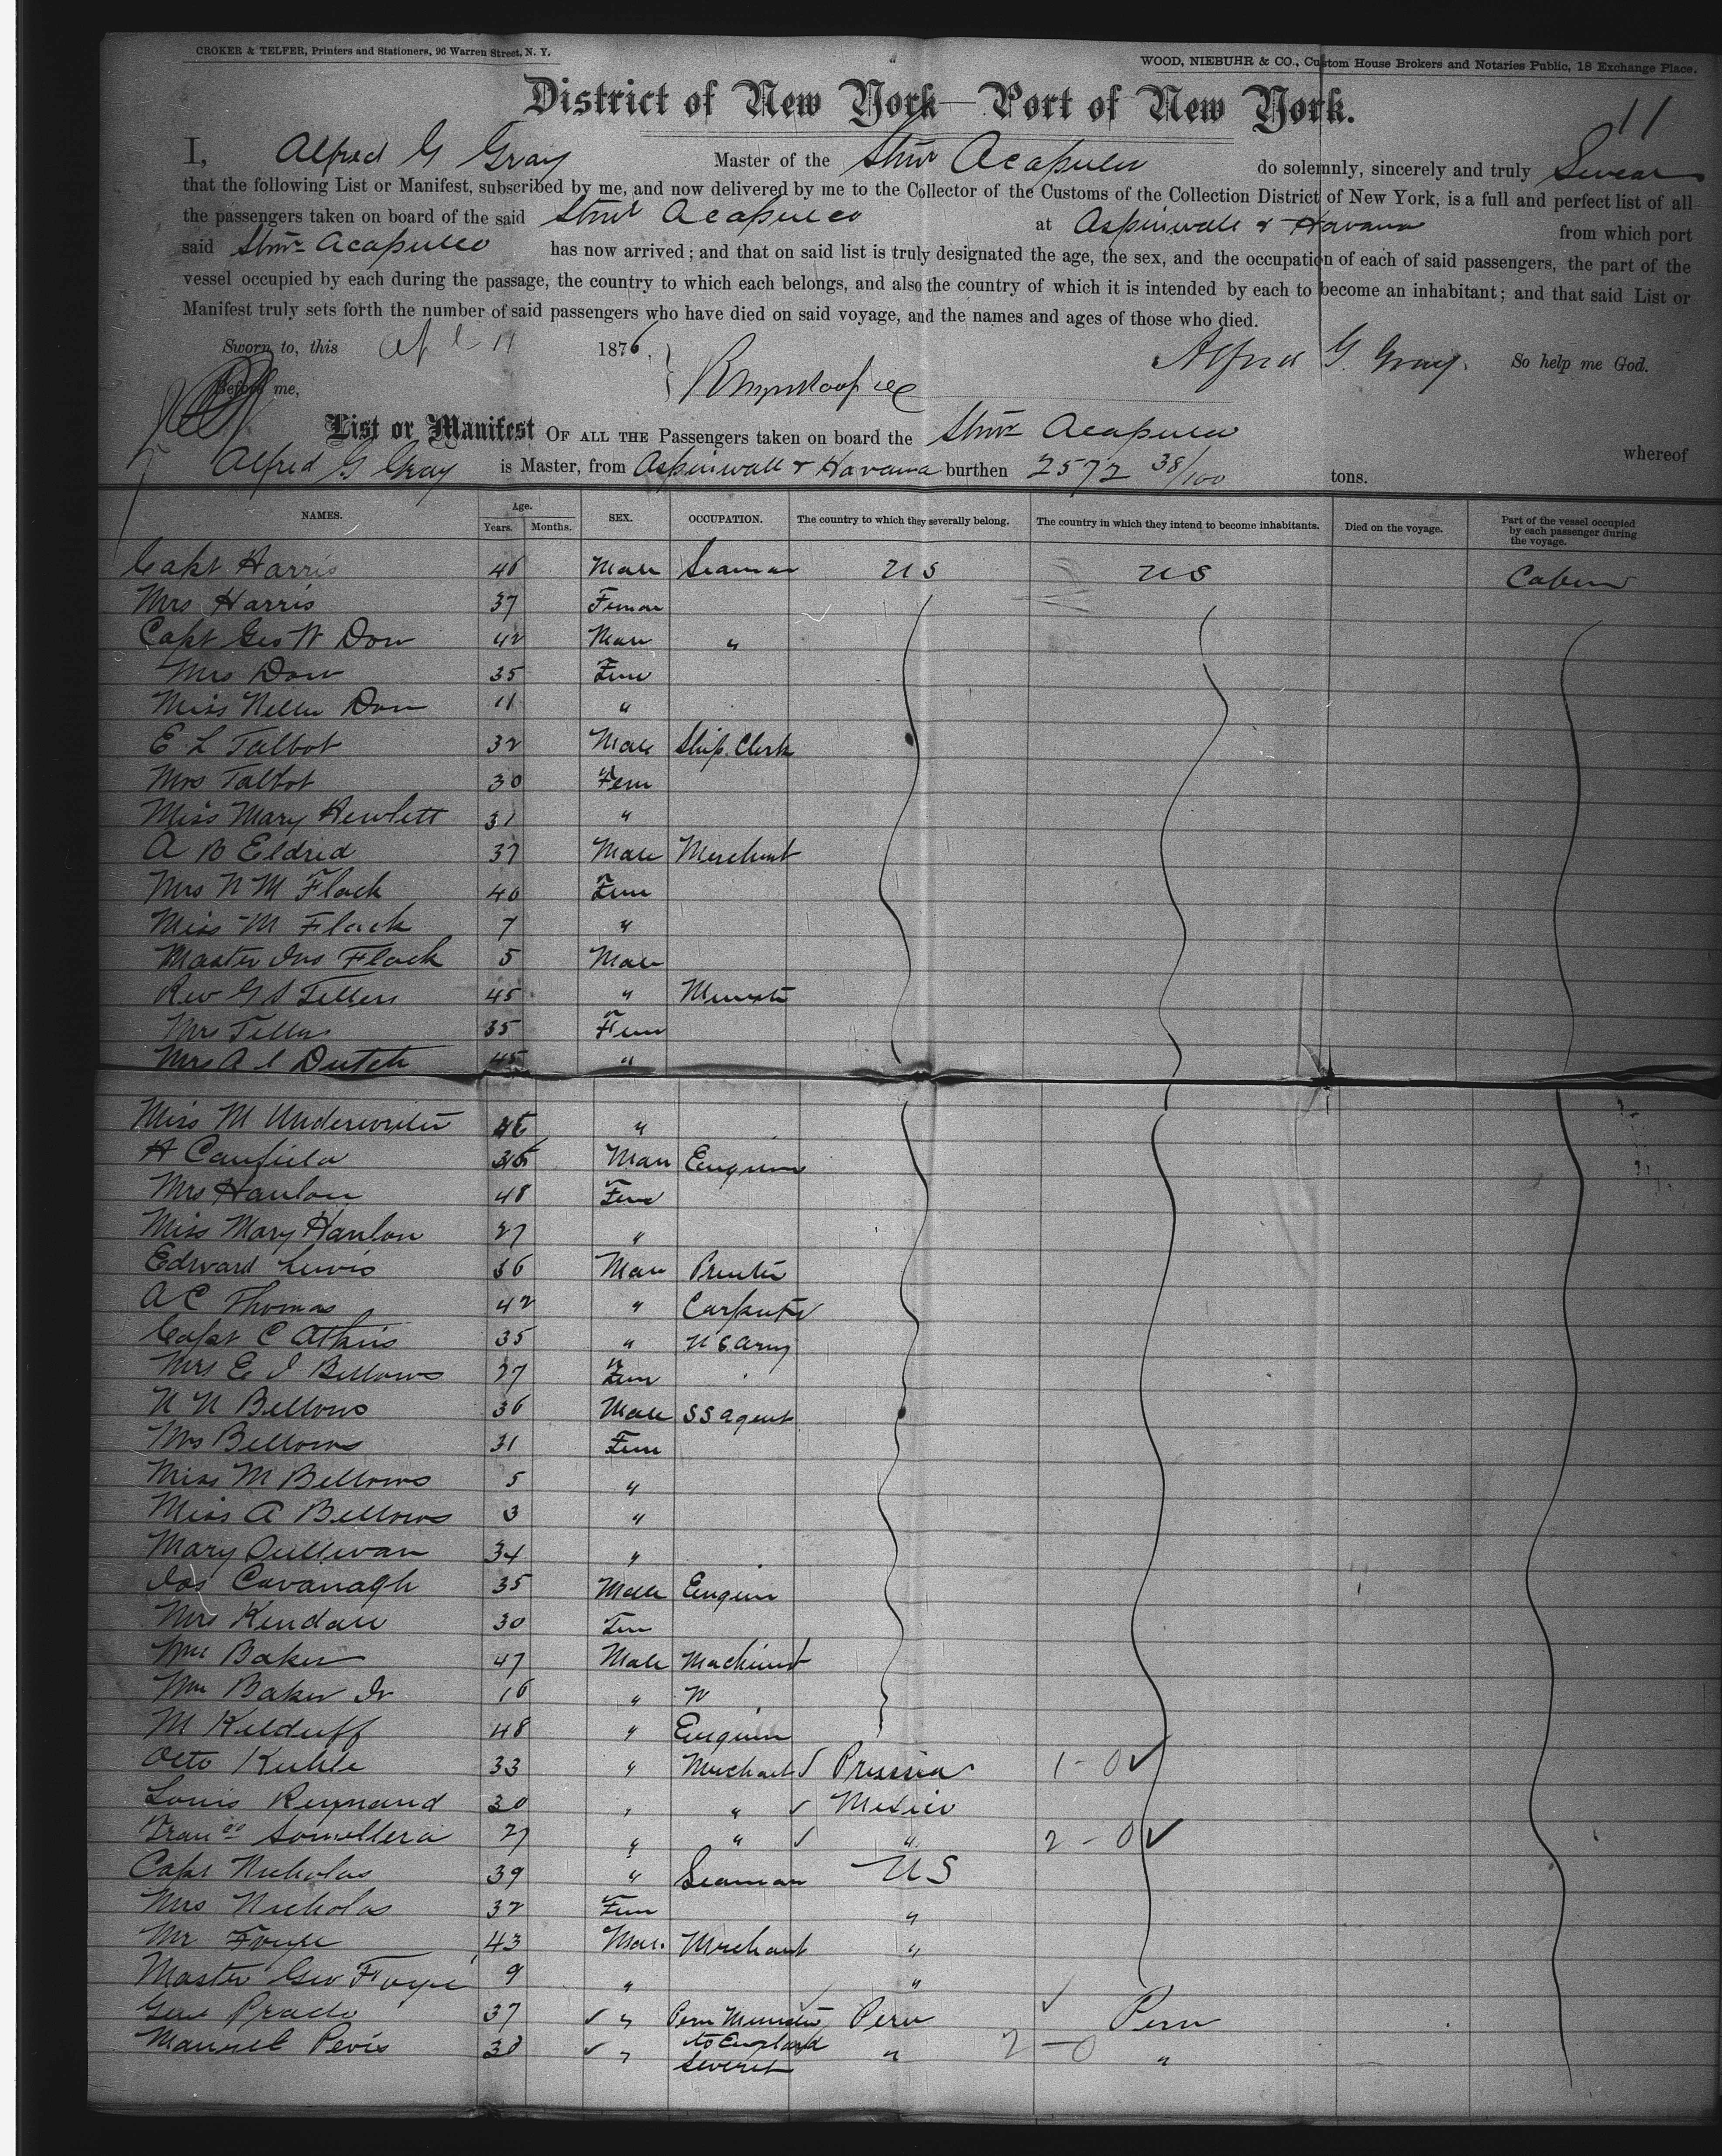 CROKER & TELFER, Printers and Stationers, 96 Warren Street, N. Y.
WOOD, NIEBUHR & CO., Custom House Brokers and Notaries Public, 18 Exchange Place.
District of New York—Port of New York.
11
I, Alfred G Gray Master of the Stmr Acapulco do solemnly, sincerely and truly Swear
that the following List or Manifest, subscribed by me, and now delivered by me to the Collector of the Customs of the Collection District of New York, is a full and perfect list of all
the passengers taken on board of the said Stmr Acapulco at Aspinwall & Havana from which port
said Stmr Acapulco has now arrived; and that on said list is truly designated the age, the sex, and the occupation of each of said passengers, the part of the
vessel occupied by each during the passage, the country to which each belongs, and also the country of which it is intended by each to become an inhabitant; and that said List or
Manifest truly sets forth the number of said passengers who have died on said voyage, and the names and ages of those who died.
Sworn to, this Apl 11 1876, Alfred G. Gray. So help me God.
Before me,
List or Manifest OF ALL THE Passengers taken on board the Stmr Acapulco whereof
Alfred G Gray is Master, from Aspinwall & Havana burthen 2572 38/100 tons.
NAMES. Age. Years. Months. SEX. OCCUPATION. The country to which they severally belong. The country in which they intend to become inhabitants. Died on the voyage. Part of the vessel occupied by each passenger during the voyage.
Capt Harris 46 Male Seaman U S U S Cabin
Mrs Harris 37 Female
Capt Geo W Dow 42 Male "
Mrs Dow 35 Fem
Miss Nellie Dow 11 "
E L Talbot 32 Male Ship. Clerk
Mrs Talbot 30 Fem
Miss Mary Hewlett 31 "
A B Eldred 37 Male Merchant
Mrs N M Flack 40 Fem
Miss M Flack 7 "
Master Jno Flack 5 Male
Rev G S 45 " Minister
Mrs 35 Fem
Mrs A L Dutch 45 "
Miss M Underwriter "
H Canfield Male Engineer
Mrs Hanlon 48 Fem
Miss Mary Hanlon 27 "
Edward Lewis 36 Male Printer
A C Thomas 42 " Carpenter
Capt C Atkins 35 " U S Army
Mrs E J Bellows 27 Fem
N N Bellows 36 Male S S Agent
Mrs Bellows 31 Fem
Miss M Bellows 5 "
Miss A Bellows 3 "
Mary Sullivan 34 "
Jas Cavanagh 35 Male Engineer
Mrs Kendall 30 Fem
Wm Baker 47 Male Machinist
Wm Baker Jr 16 " "
M Kilduff 48 " Engineer
Otto Kuhle 33 " Merchant Prussia 1-0
Louis Reynaud 30 " " Mexico
Franco Somellera 27 " " " 2-0
Capt Nicholas 39 " Seaman U S
Mrs Nicholas 32 Fem "
Mr Foye 43 Male Merchant "
Master Geo Foye 9 " "
Genl Prado 37 " Peru Minister to England Peru Peru
Manuel 30 " " 2-0 "